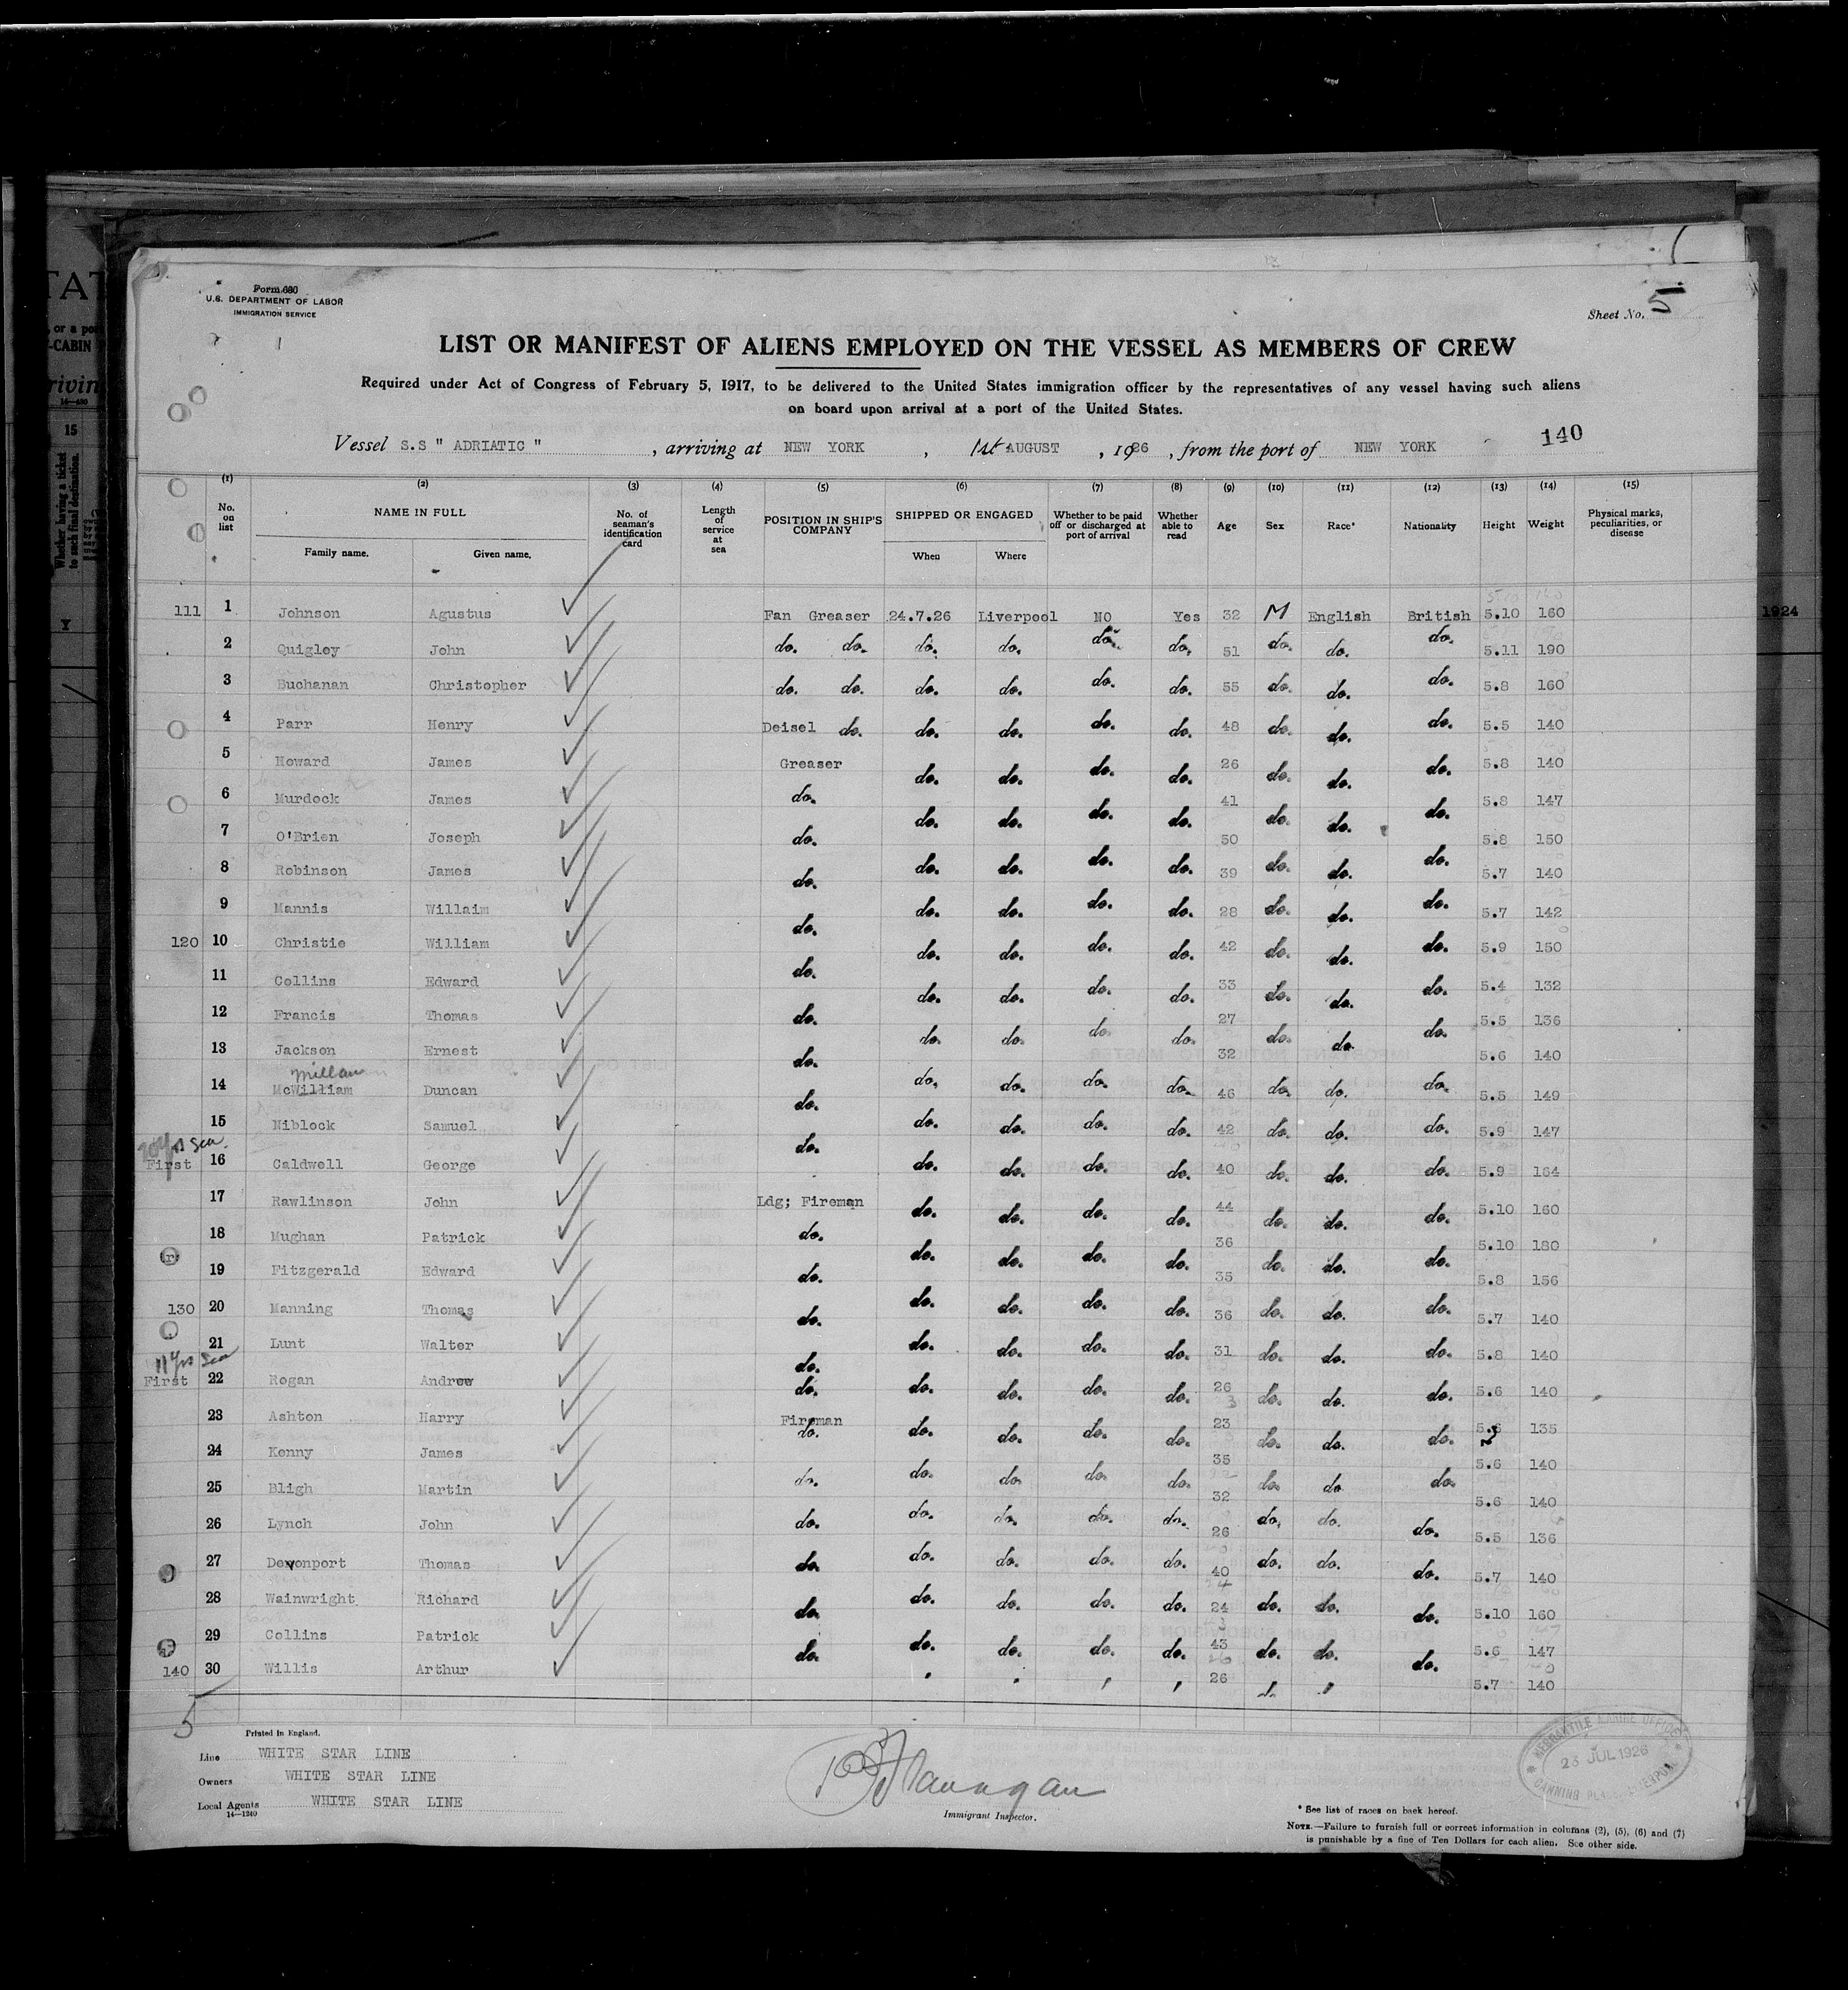 Form 680
U.S. DEPARTMENT OF LABOR
IMMIGRATION SERVICE
Sheet No. 5
LIST OR MANIFEST OF ALIENS EMPLOYED ON THE VESSEL AS MEMBERS OF CREW
Required under Act of Congress of February 5, 1917, to be delivered to the United States immigration officer by the representatives of any vessel having such aliens
on board upon arrival at a port of the United States.
Vessel S.S " ADRIATIC " , arriving at NEW YORK , AUGUST , 1926 , from the port of NEW YORK 140
(1) (2) (3) (4) (5) (6) (7) (8) (9) (10) (11) (12) (13) (14) (15)
No. on list NAME IN FULL Family name. Given name. No. of seaman's identification card Length of service at sea POSITION IN SHIP'S COMPANY SHIPPED OR ENGAGED When Where Whether to be paid off or discharged at port of arrival Whether able to read Age Sex Race* Nationality Height Weight Physical marks, peculiarities, or disease
111 1 Johnson Agustus Fan Greaser 24.7.26 Liverpool NO Yes 32 M English British 5.10 160
2 Quigley John do. do. do. do. do. do. 51 do. do. do. 5.11 190
3 Buchanan Christopher do. do. do. do. do. do. 55 do. do. do. 5.8 160
4 Parr Henry Deisel do. do. do. do. do. 48 do. do. do. 5.5 140
5 Howard James Greaser do. do. do. do. 26 do. do. do. 5.8 140
6 Murdock James do. do. do. do. do. 41 do. do. do. 5.8 147
7 O'Brien Joseph do. do. do. do. do. 50 do. do. do. 5.8 150
8 Robinson James do. do. do. do. do. 39 do. do. do. 5.7 140
9 Mannis Willaim do. do. do. do. do. 28 do. do. do. 5.7 142
120 10 Christie William do. do. do. do. do. 42 do. do. do. 5.9 150
11 Collins Edward do. do. do. do. do. 33 do. do. do. 5.4 132
12 Francis Thomas do. do. do. do. do. 27 do. do. do. 5.5 136
13 Jackson Ernest do. do. do. do. do. 32 do. do. do. 5.6 140
millan
14 McWilliam Duncan do. do. do. do. do. 46 do. do. do. 5.5 149
15 Niblock Samuel do. do. do. do. do. 42 do. do. do. 5.9 147
20 yrs Sea
First 16 Caldwell George do. do. do. do. 40 do. do. do. 5.9 164
17 Rawlinson John Ldg; Fireman do. do. do. do. 44 do. do. do. 5.10 160
18 Mughan Patrick do. do. do. do. do. 36 do. do. do. 5.10 180
19 Fitzgerald Edward do. do. do. do. do. 35 do. do. do. 5.8 156
130 20 Manning Thomas do. do. do. do. do. 36 do. do. do. 5.7 140
21 Lunt Walter do. do. do. do. do. 31 do. do. do. 5.8 140
11 yrs Sea
First 22 Rogan Andrew do. do. do. do. do. 26 do. do. do. 5.6 140
23 Ashton Harry Fireman do. do. do. do. 23 do. do. do. 5.6 135
24 Kenny James do. do. do. do. do. 35 do. do. do. 5.6 140
25 Bligh Martin do. do. do. do. do. 32 do. do. do. 5.6 140
26 Lynch John do. do. do. do. do. 26 do. do. do. 5.5 136
27 Devonport Thomas do. do. do. do. do. 40 do. do. do. 5.7 140
28 Wainwright Richard do. do. do. do. do. 24 do. do. do. 5.10 160
29 Collins Patrick do. do. do. do. do. 43 do. do. do. 5.6 147
140 30 Willis Arthur 26 5.7 140
5
Printed in England.
Line WHITE STAR LINE
Owners WHITE STAR LINE
Local Agents WHITE STAR LINE
14—1240
Flanagan
Immigrant Inspector.
MERCANTILE MARINE OFFICE
23 JUL 1926
CANNING PLACE LIVERPOOL
* See list of races on back hereof.
NOTE.—Failure to furnish full or correct information in columns (2), (5), (6) and (7)
is punishable by a fine of Ten Dollars for each alien. See other side.
or a port
-CABIN
15
Whether having a ticket
to such final destination.
Y
1924